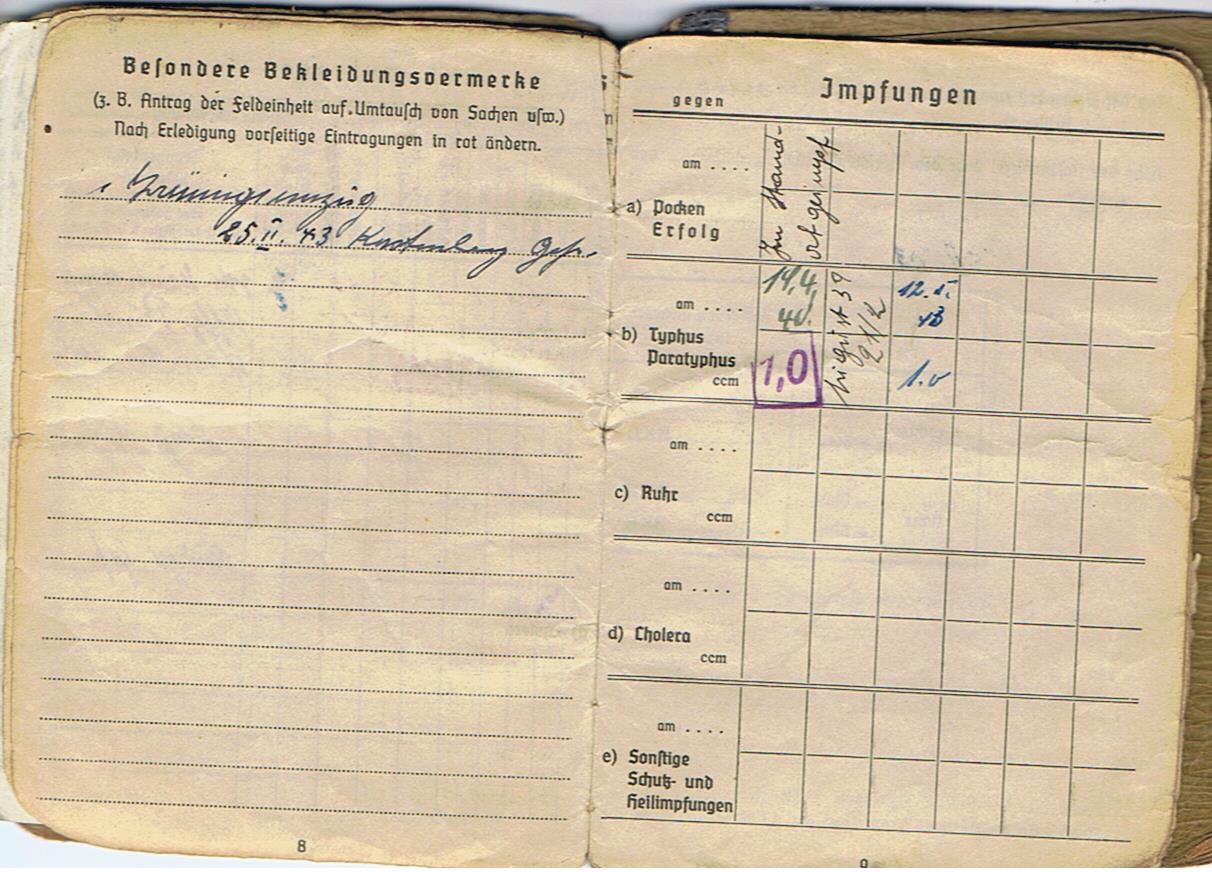 Besondere Bekleidungsvermerke
(z. B. Antrag der Feldeinheit auf Umtausch von Sachen usw.)
Nach Erledigung vorseitige Eintragungen in rot ändern.
1 Trainingsanzug
25. II. 43 Gefr.
8
Impfungen
gegen
am ....
a) Pocken
Erfolg
Im Stand-
ort geimpft
am ....
b) Typhus
Paratyphus
ccm
14.4.
40.
1,0
August 39
2 x
12. II.
43
1.0
am ....
c) Ruhr
ccm
am ....
d) Cholera
ccm
am ....
e) Sonstige
Schutz- und
Heilimpfungen
9